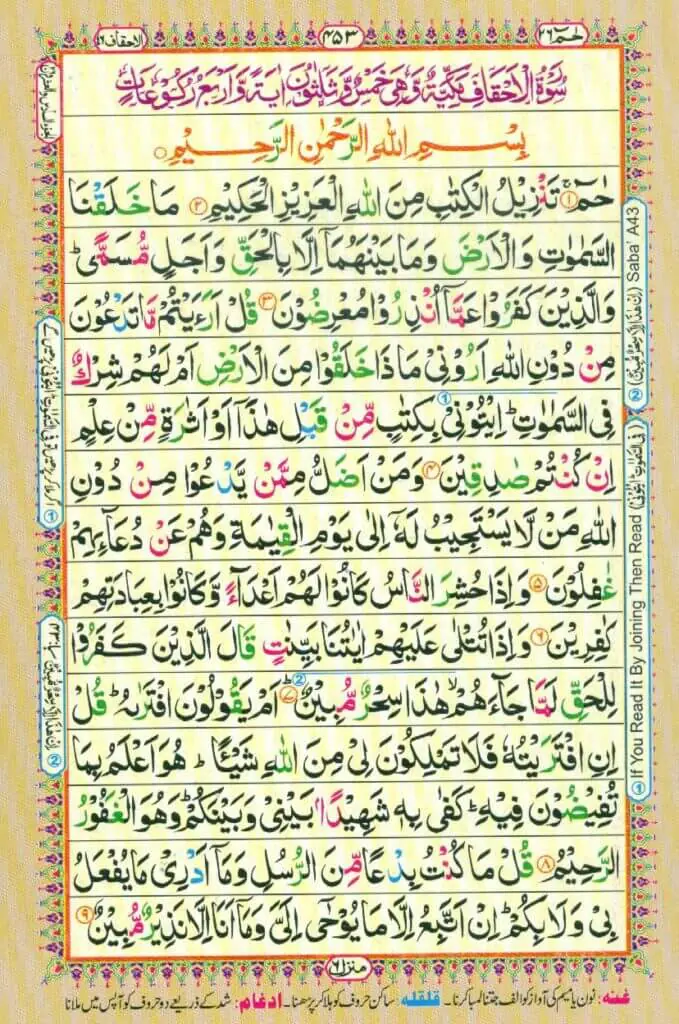 حٰمٓ ٢٦
٤٥٣
الاحقاف ٤٦
سُوْرَةُ الْاَحْقَافِ مَكِّيَّةٌ وَّهِيَ خَمْسٌ وَّثَلٰثُوْنَ اٰيَةً وَّاَرْبَعُ رُكُوْعَاتٍ
بِسْمِ اللّٰهِ الرَّحْمٰنِ الرَّحِيْمِ
حٰمٓ ۚ﴿١﴾ تَنْزِيْلُ الْكِتٰبِ مِنَ اللّٰهِ الْعَزِيْزِ الْحَكِيْمِ ﴿٢﴾ مَا خَلَقْنَا
السَّمٰوٰتِ وَالْاَرْضَ وَمَا بَيْنَهُمَاۤ اِلَّا بِالْحَقِّ وَاَجَلٍ مُّسَمًّى ؕ
وَالَّذِيْنَ كَفَرُوْا عَمَّاۤ اُنْذِرُوْا مُعْرِضُوْنَ ﴿٣﴾ قُلْ اَرَءَيْتُمْ مَّا تَدْعُوْنَ
مِنْ دُوْنِ اللّٰهِ اَرُوْنِيْ مَاذَا خَلَقُوْا مِنَ الْاَرْضِ اَمْ لَهُمْ شِرْكٌ
فِي السَّمٰوٰتِ ؕ اِيْتُوْنِيْ بِكِتٰبٍ مِّنْ قَبْلِ هٰذَاۤ اَوْ اَثٰرَةٍ مِّنْ عِلْمٍ
اِنْ كُنْتُمْ صٰدِقِيْنَ ﴿٤﴾ وَمَنْ اَضَلُّ مِمَّنْ يَّدْعُوْا مِنْ دُوْنِ
اللّٰهِ مَنْ لَّا يَسْتَجِيْبُ لَهٗۤ اِلٰى يَوْمِ الْقِيٰمَةِ وَهُمْ عَنْ دُعَآئِهِمْ
غٰفِلُوْنَ ﴿٥﴾ وَاِذَا حُشِرَ النَّاسُ كَانُوْا لَهُمْ اَعْدَآءً وَّكَانُوْا بِعِبَادَتِهِمْ
كٰفِرِيْنَ ﴿٦﴾ وَاِذَا تُتْلٰى عَلَيْهِمْ اٰيٰتُنَا بَيِّنٰتٍ قَالَ الَّذِيْنَ كَفَرُوْا
لِلْحَقِّ لَمَّا جَآءَهُمْ ۙ هٰذَا سِحْرٌ مُّبِيْنٌ ﴿٧﴾ اَمْ يَقُوْلُوْنَ افْتَرٰىهُ ؕ قُلْ
اِنِ افْتَرَيْتُهٗ فَلَا تَمْلِكُوْنَ لِيْ مِنَ اللّٰهِ شَيْـًٔا ؕ هُوَ اَعْلَمُ بِمَا
تُفِيْضُوْنَ فِيْهِ ؕ كَفٰى بِهٖ شَهِيْدًاۢ بَيْنِيْ وَبَيْنَكُمْ ؕ وَهُوَ الْغَفُوْرُ
الرَّحِيْمُ ﴿٨﴾ قُلْ مَا كُنْتُ بِدْعًا مِّنَ الرُّسُلِ وَمَاۤ اَدْرِيْ مَا يُفْعَلُ
بِيْ وَلَا بِكُمْ ؕ اِنْ اَتَّبِعُ اِلَّا مَا يُوْحٰۤى اِلَيَّ وَمَاۤ اَنَا اِلَّا نَذِيْرٌ مُّبِيْنٌ ﴿٩﴾
① If You Read It By Joining Then Read (فِي السَّمٰوٰتِ ايْتُوْنِيْ) ② (اِنْ هٰذَاۤ اِلَّا سِحْرٌ مُّبِيْنٌ) Saba' A43
منزل ٦
غنه: نون یا میم کی آواز کو الف جتنا لمبا کرنا۔ قلقله: ساکن حروف کو ہلا کر پڑھنا۔ ادغام: شد کے ذریعے دو حروف کو آپس میں ملانا